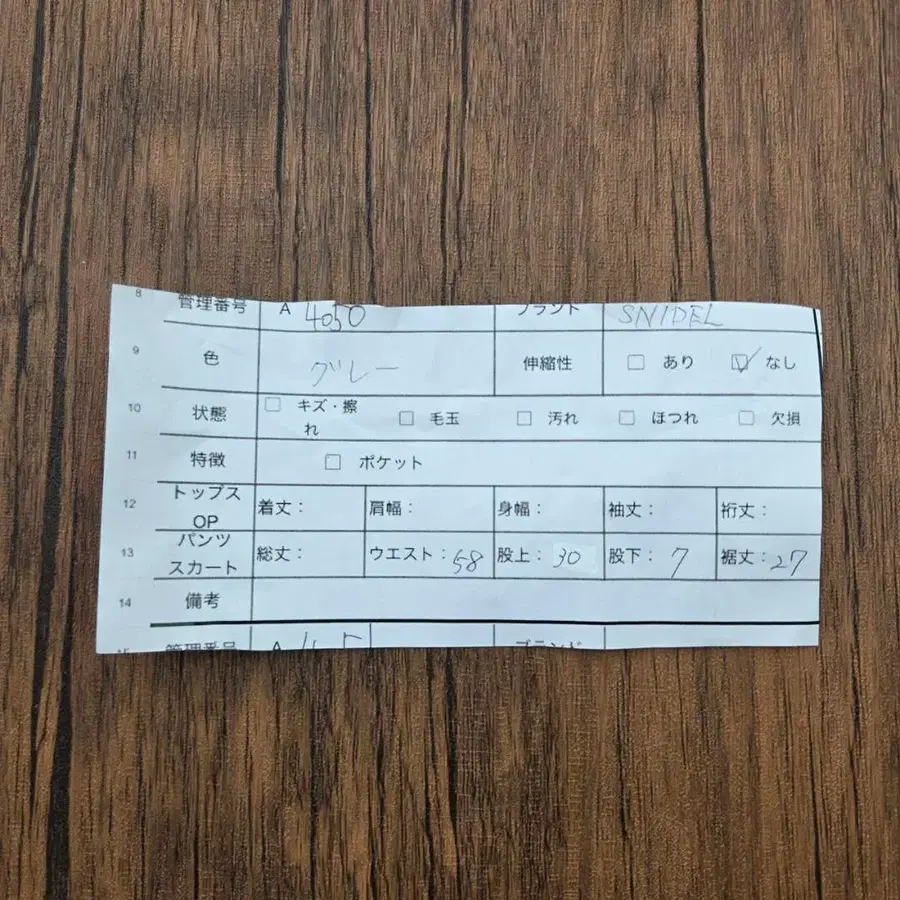 8 管理番号 A 4050 ブランド SNIDEL
9 色 グレー 伸縮性 □ あり ☑ なし
10 状態 □ キズ・擦れ □ 毛玉 □ 汚れ □ ほつれ □ 欠損
11 特徴 □ ポケット
12 トップス OP 着丈： 肩幅： 身幅： 袖丈： 裄丈：
13 パンツ スカート 総丈： ウエスト：58 股上：30 股下：7 裾丈：27
14 備考
15 管理番号 A ブランド